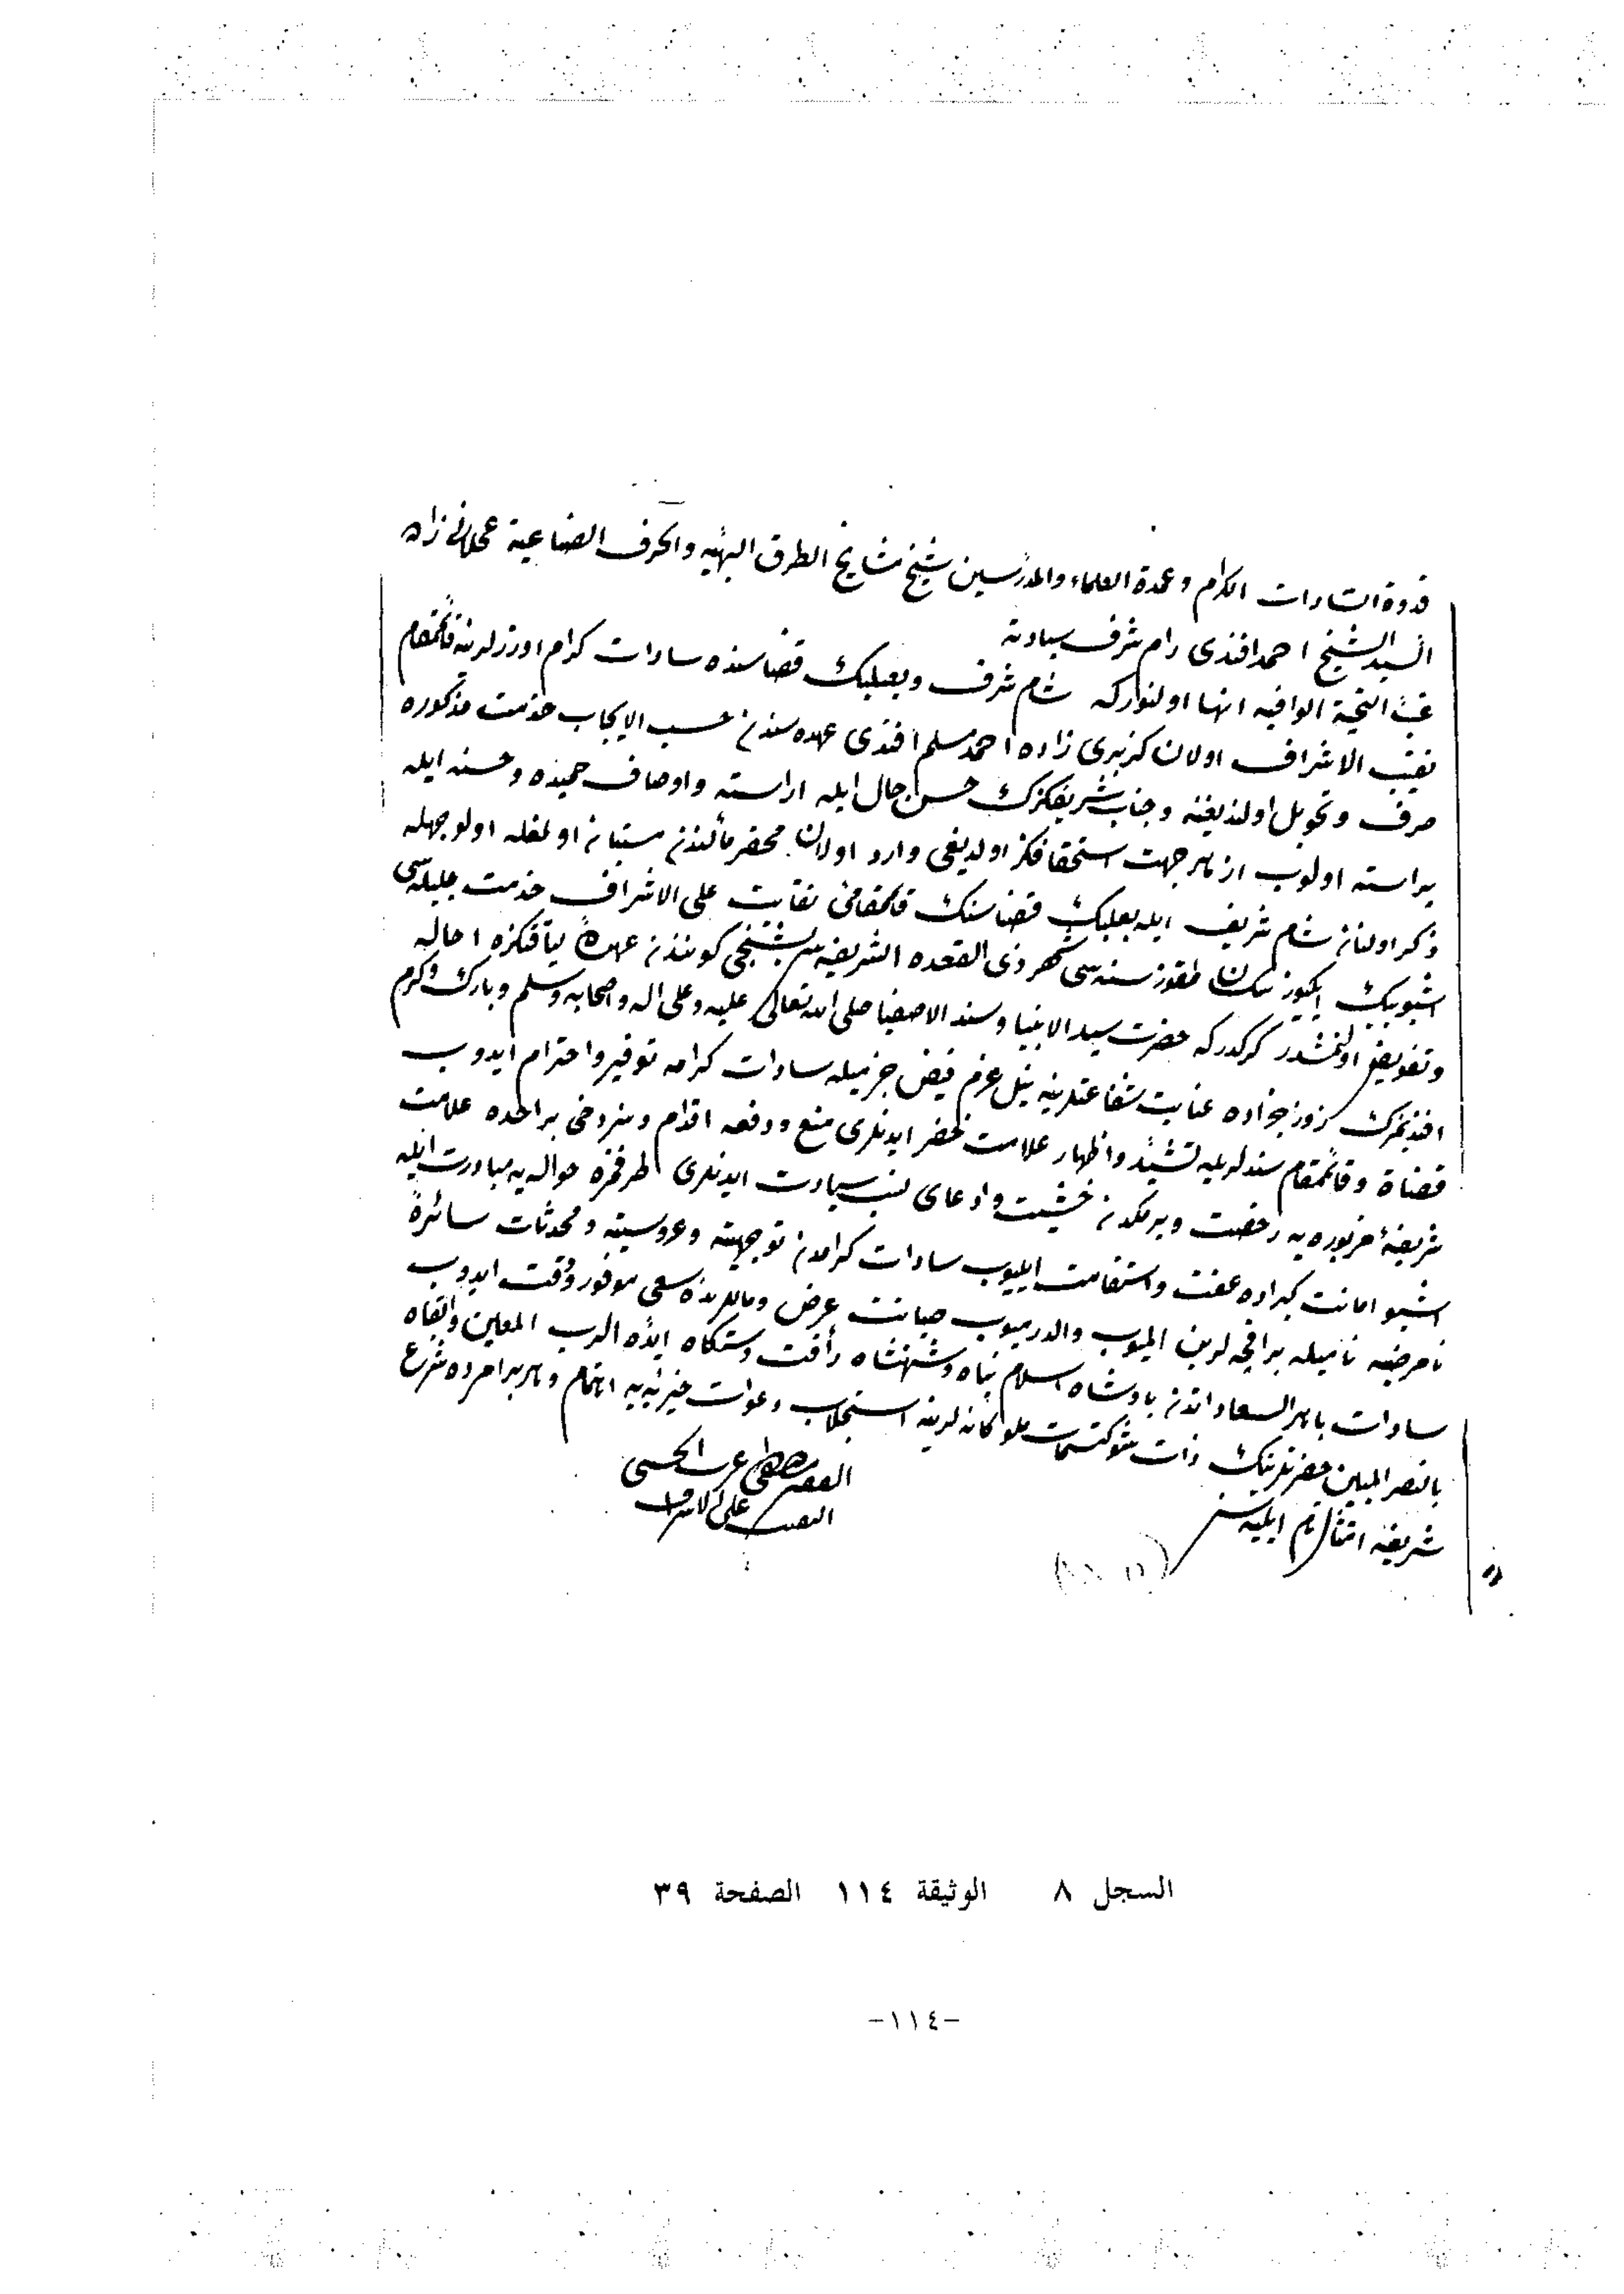 قدوة السادات الكرام وعمدة العلماء والمدرسين شيخ مشايخ الطرق البهيه والحرف الصناعية عجلانى زاده
السيد الشيخ احمد افندى دام شرف سيادته
غب التحية الوافيه انها اولنوركه شام شرف وبعلبك قضاسنده سادات كرام اوزرلرينه قائمقام
نقيب الاشراف اولان كزبرى زاده احمد مسلم افندى عهده سندن حسب الايجاب خدمت مذكوره
صرف وتحويل اولنديغنه وجناب شريفكزك حسن حال ايله اراسته واوصاف حميده وحسنه ايله
پيراسته اولوب از هر جهت استحقاقكز اولديغى وارد اولان محضر مألندن مستبان اولمغله اولوجهله
ذكر اولنان شام شريف ايله بعلبك قضاسنك قائمقامئ نقابت على الاشراف خدمت جليله سى
اشبو بيك ايكيوز سكسان طقوز سنه سى شهر ذى القعده الشريفه سى بشنجى كونندن عهدهٔ لياقتكزه احاله
وتفويض اولنمشدر كركدركه حضرت سيد الانبيا وسند الاصفيا صلى الله تعالى عليه وعلى اله واصحابه وسلم وبارك وكرم
افندمزك روز جزاده عنايت شفاعتلرينه نيل عزم فيض جزميله سادات كرامه توقير واحترام ايدوب
قضاة وقائمقام سندلريله تشيد واظهار علامت خضر ايدنلرى منع ودفعه اقدام ومنردخى براحده علامت
شريفهٔ مزبوره يه رخصت ويرمكدن خشيت وادعاى نسب سيادت ايدنلرى طرفمزه حواله يه مبادرت ايله
اشبو امانت كبراده عفت واستقامت ايليوب سادات كرامدن توجيهيه وعروسيه ومحدثات سائرهٔ
نامرضيه ناميله بر اقچه لرين الميوب والدرميوب صيانت عرض وماللرنده سعى موفور ودقت ايدوب
سادات باهر السعاداتدن پادشاه اسلام پناه وشهنشاه رأفت دستكاه ايده الرب المعين وابقاه
بالنصر المبين حضرتلرينك ذات شوكتسمات ملوكانه لرينه استجلاب دعوات خيريه يه اهتمام وهر بر امرده شرع
شريفه امتثال تام ايليه سز
الفقير مصطفى عزت الحسنى
النقيب على الاشراف
السجل ٨ الوثيقة ١١٤ الصفحة ٣٩
-١١٤-